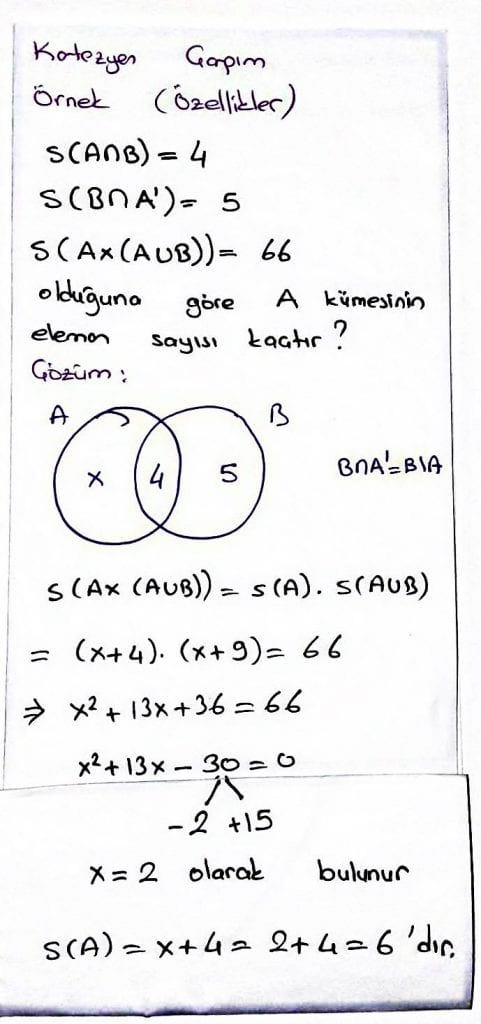 Kotezyen Çarpım
Örnek (Özellikler)
S(A∩B) = 4
S(B∩A') = 5
S(Ax(A∪B)) = 66
olduğuna göre A kümesinin
eleman sayısı kaçtır?
Çözüm:
A B
x 4 5 B∩A'=B\A
S(Ax(A∪B)) = s(A). S(A∪B)
= (x+4). (x+9) = 66
⇒ x² + 13x + 36 = 66
x² + 13x - 30 = 0
-2 +15
x = 2 olarak bulunur
S(A) = x+4 = 2+4 = 6 'dır.